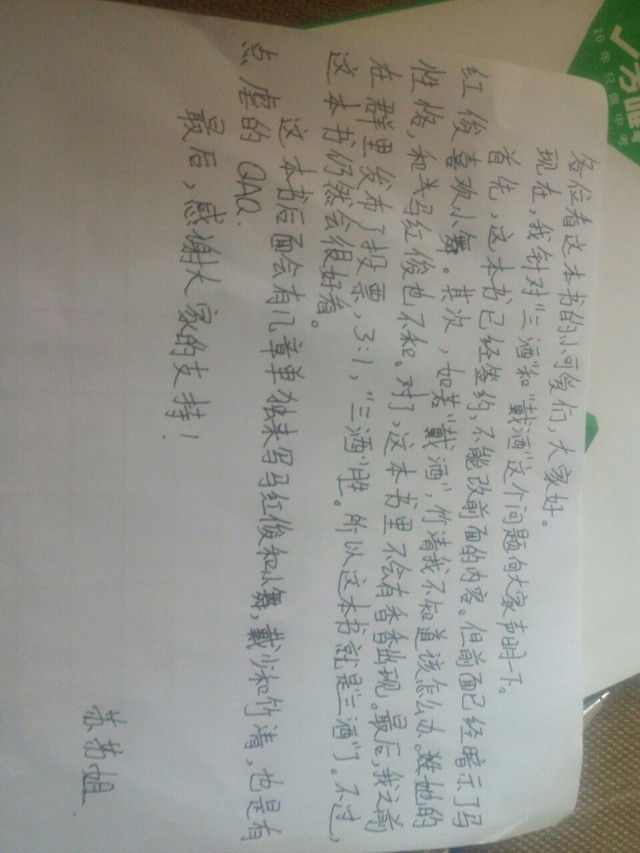 各位看这本书的小可爱们，大家好。
现在，我针对“三洒”和“戴洒”这个问题向大家声明一下。
首先，这本书已经签约，不能改前面的内容。但前面已经暗示了马
红俊喜欢小舞。其次，如若“戴洒”，竹清我不知道该怎么办。她的
性格，和马红俊也不和。对了，这本书里不会有香香出现。最后，我之前
在群里发布了投票，3:1，“三洒”胜。所以这本书就是“三洒”了。不过，
这本书仍然会很好看。
这本书后面会有几章单独来写马红俊和小舞，戴少和竹清，也是有
点虐的QAQ.
最后，感谢大家的支持！
16年只做中考